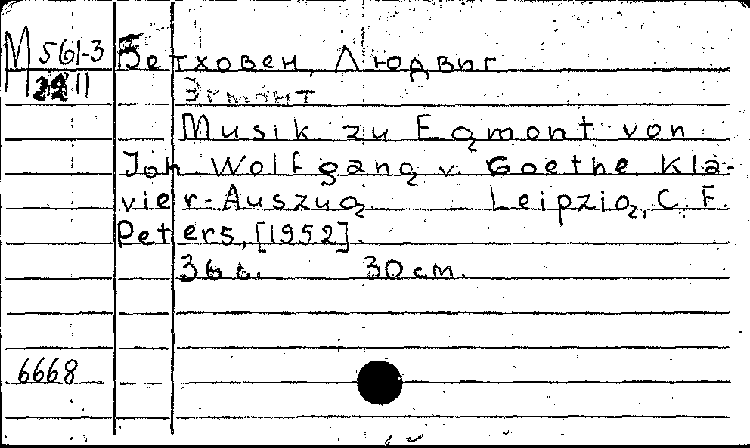 М 561-3 Бетховен, Людвиг
Эгмонт
Musik zu Egmont von
Joh Wolfgang v. Goethe Kla-
vier-Auszug Leipzig, C. F.
Peters, [1952].
36 с. 30 cm.
6668